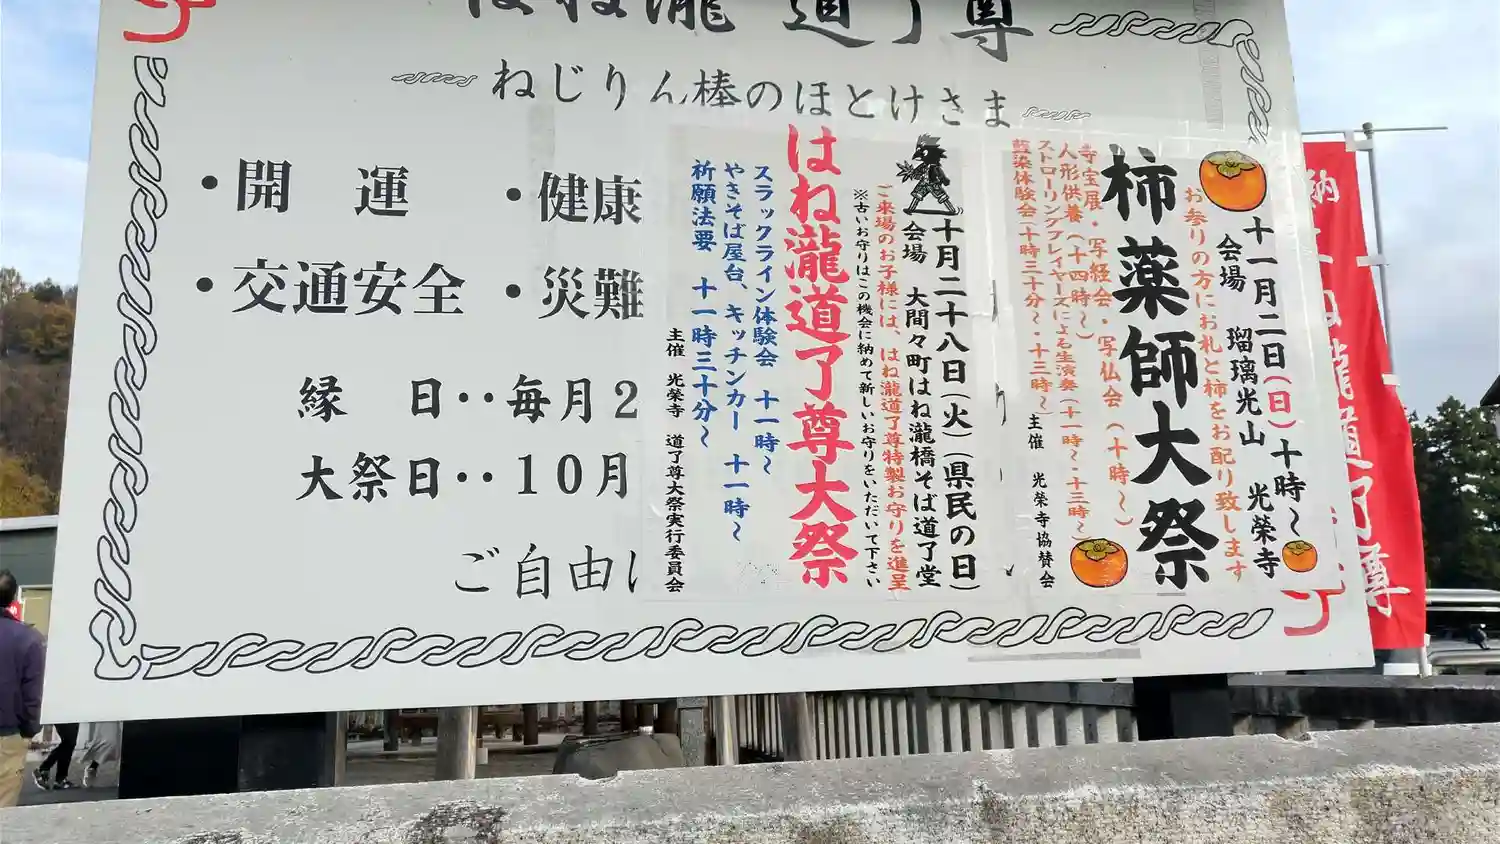 はね瀧 道了尊
ねじりん棒のほとけさま
・開 運
・健康
・交通安全
・災難
縁 日‥毎月2
大祭日‥10月
ご自由に
十一月二日(日)十時〜
会場 瑠璃光山 光榮寺
お参りの方にお札と柿をお配り致します
柿薬師大祭
寺宝展・写経会・写仏会(十時〜)
人形供養(十四時〜)
ストローリングプレイヤーズによる生演奏(十一時〜・十三時〜)
藍染体験会(十時三十分〜・十三時〜)
主催 光榮寺協賛会
十月二十八日(火)(県民の日)
会場 大間々町はね瀧橋そば道了堂
ご来場のお子様には、はね瀧道了尊特製お守りを進呈
※古いお守りはこの機会に納めて新しいお守りをいただいて下さい
はね瀧道了尊大祭
スラックライン体験会 十一時〜
やきそば屋台、キッチンカー 十一時〜
祈願法要 十一時三十分〜
主催 光榮寺 道了尊大祭実行委員会
納
瀧道了尊